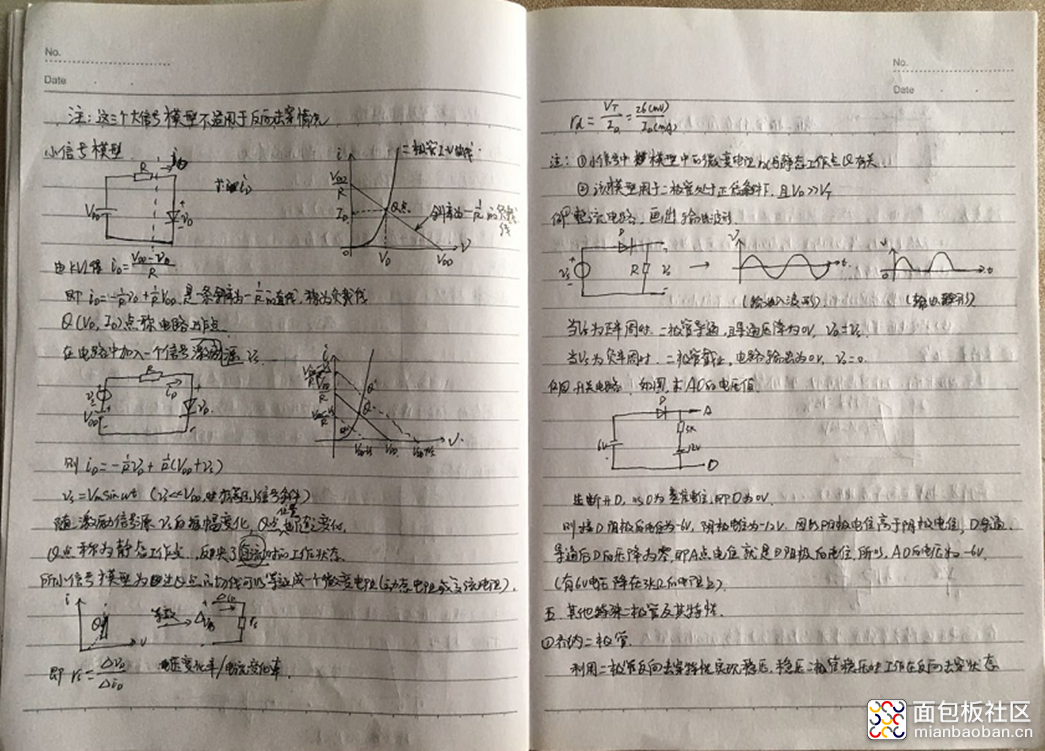 No.
Date
注：这三个大信号模型不适用于反向击穿情况
小信号模型
R
VDD
二极管I-V曲线
VDD/R
ID
Q点
斜率为-1/R的负载线
VD
VDD
由KVL得 iD=(VDD-vD)/R
即 iD=-1/R vD+1/R VDD 是一条斜率为-1/R的直线，称为负载线
Q(VD, ID)点称电路工作点
在电路中加入一个信号激励源 vs
则 iD=-1/R vD+1/R(VDD+vs)
vs=Vmsinwt (vs<<VDD,
随激励信号源vs的振幅变化，Q点位置也随之变化
Q点称为静态工作点，反映了时的工作状态
即 rd=ΔvD/ΔiD 电压变化率/电流变化率
No.
Date
rd=VT/ID=26(mV)/ID(mA)
注：①小信号模型中的微变电阻rd与静态工作点Q有关
②该模型用于二极管处于正偏条件下，且VD>>VT
整流电路，画出输出波形
D
R
(输入波形)
(输出波形)
当vs为正半周时，二极管导通，且导通压降为0V，vo=vs
当vs为负半周时，二极管截止，电路输出为0V，vo=0
开关电路，如图，求AO的电压值
D
A
6V
12V
先断开D，以O为基准电位，即O为0V
则接D阳极的电位为-6V，阴极电位为-12V，因为阳极电位高于阴极电位，D导通
导通后D的压降为零，即A点电位就是D阳极的电位，所以，AO的电压为-6V.
(有6V电压降在3kΩ的电阻上)
五.其他特殊二极管及其特性
①齐纳二极管
利用二极管反向击穿特性实现稳压，稳压二极管稳压时工作在反向击穿状态
面包板社区
mianbaoban.cn